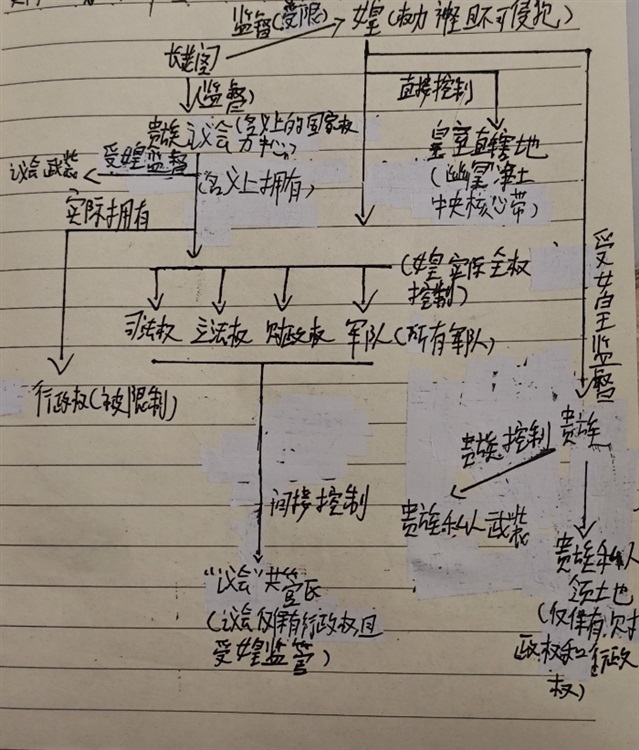 监督(受限)
女皇(权力神圣且不可侵犯)
长老阁
(监督)
直接控制
贵族议会(名义上的国家权
力中心)
皇室直辖地
(幽冥净土
中央核心带)
议会武装
受女皇监督
(名义上拥有)
实际拥有
(女皇实际全权
控制)
受女皇监督
司法权
立法权
财政权
军队(所有军队)
行政权(被限制)
贵族
贵族控制
间接控制
贵族私人武装
贵族私人
领土地
(仅保有财
政权和行政
权)
“议会”共管区
(议会仅保有行政权且
受女皇监管)